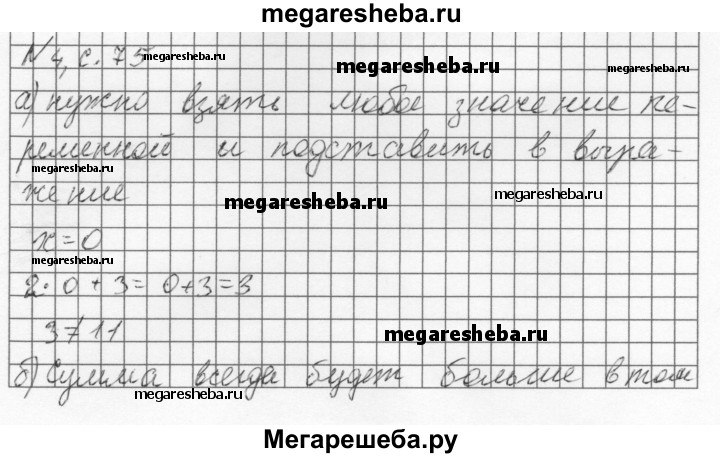 megaresheba.ru
N 4, с. 75
megaresheba.ru
megaresheba.ru
megaresheba.ru
а) нужно взять любое значение пе-
ременной и подставить в выра-
megaresheba.ru
жение
megaresheba.ru
megaresheba.ru
x=0
megaresheba.ru
2·0+3=0+3=3
3≠11
megaresheba.ru
б) Сумма всегда будет больше в том
megaresheba.ru
Мегарешеба.ру